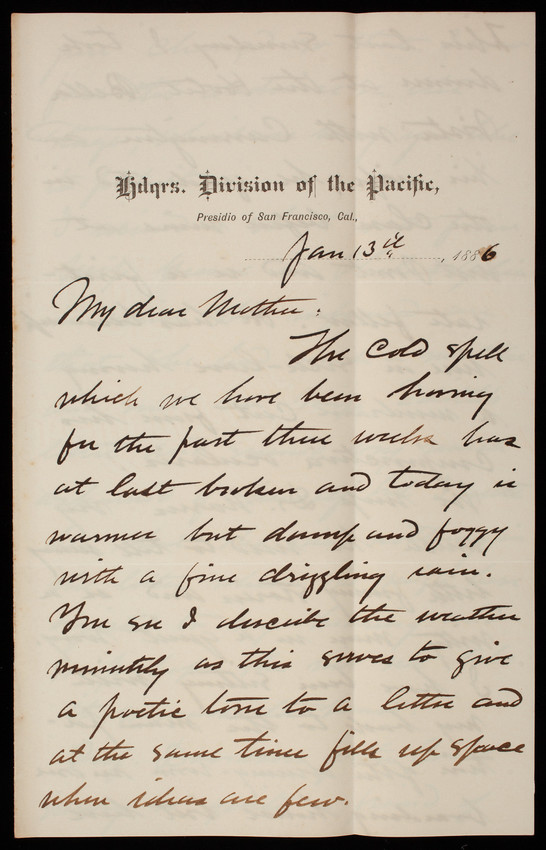 Hdqrs. Division of the Pacific,
Presidio of San Francisco, Cal.,
Jan 13th, 1886
My dear Mother:
The cold spell
which we have been having
for the past three weeks has
at last broken and today is
warmer but damp and foggy
with a fine drizzling rain.
You see I describe the weather
minutely as this serves to give
a poetic tone to a letter and
at the same time fills up space
when ideas are few.